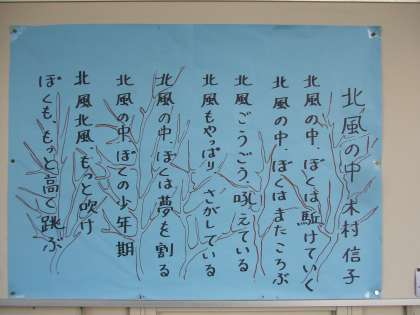 北風の中 木村 信子
北風の中、ぼくは駈けていく
北風の中、ぼくはまたころぶ
北風 ごうごう、吼えている
北風もやっぱり、さがしている
北風の中、ぼくは夢を割る
北風の中 ぼくの少年期
北風 北風、もっと吹け
ぼくも、もっと高く跳ぶ